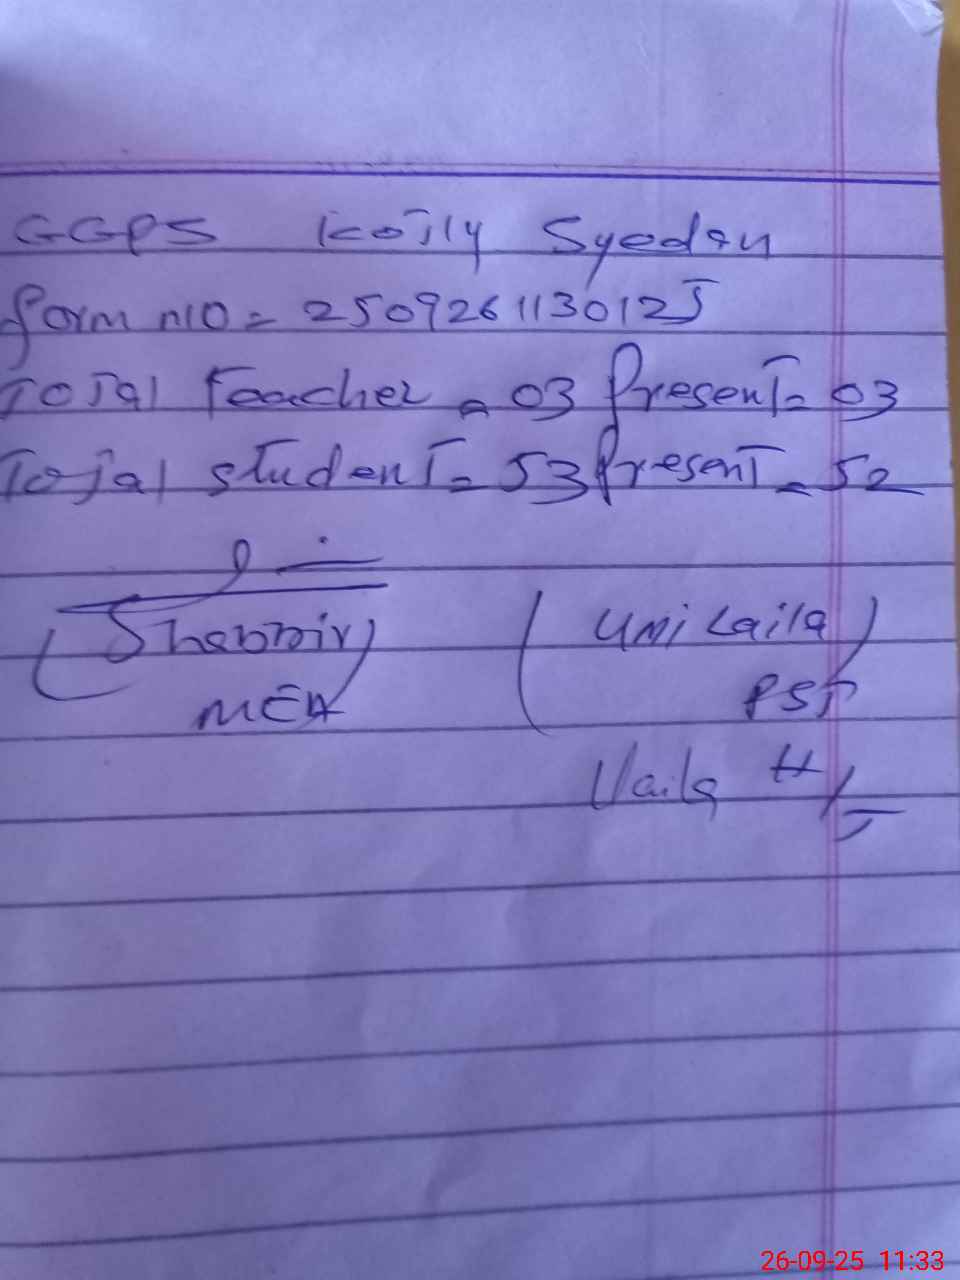 GGPS Kotly Syedan
form no = 2509261130125
Total Teacher = 03 Present = 03
Total student = 53 Present = 52
(Shabbir) (Umi Laila)
MEA PST
Laila
26-09-25 11:33